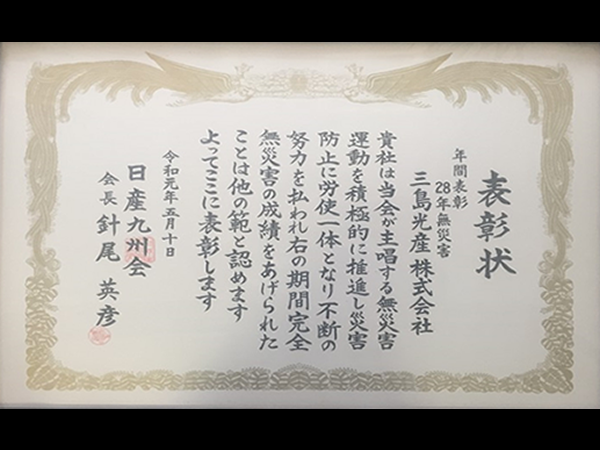 表彰状
年間表彰
28年無災害
三島光産株式会社
貴社は当会が主唱する無災害
運動を積極的に推進し災害
防止に労使一体となり不断の
努力を払われ右の期間完全
無災害の成績をあげられた
ことは他の範と認めます
よってここに表彰します
令和元年五月十日
日産九州会
会長 針尾 英彦